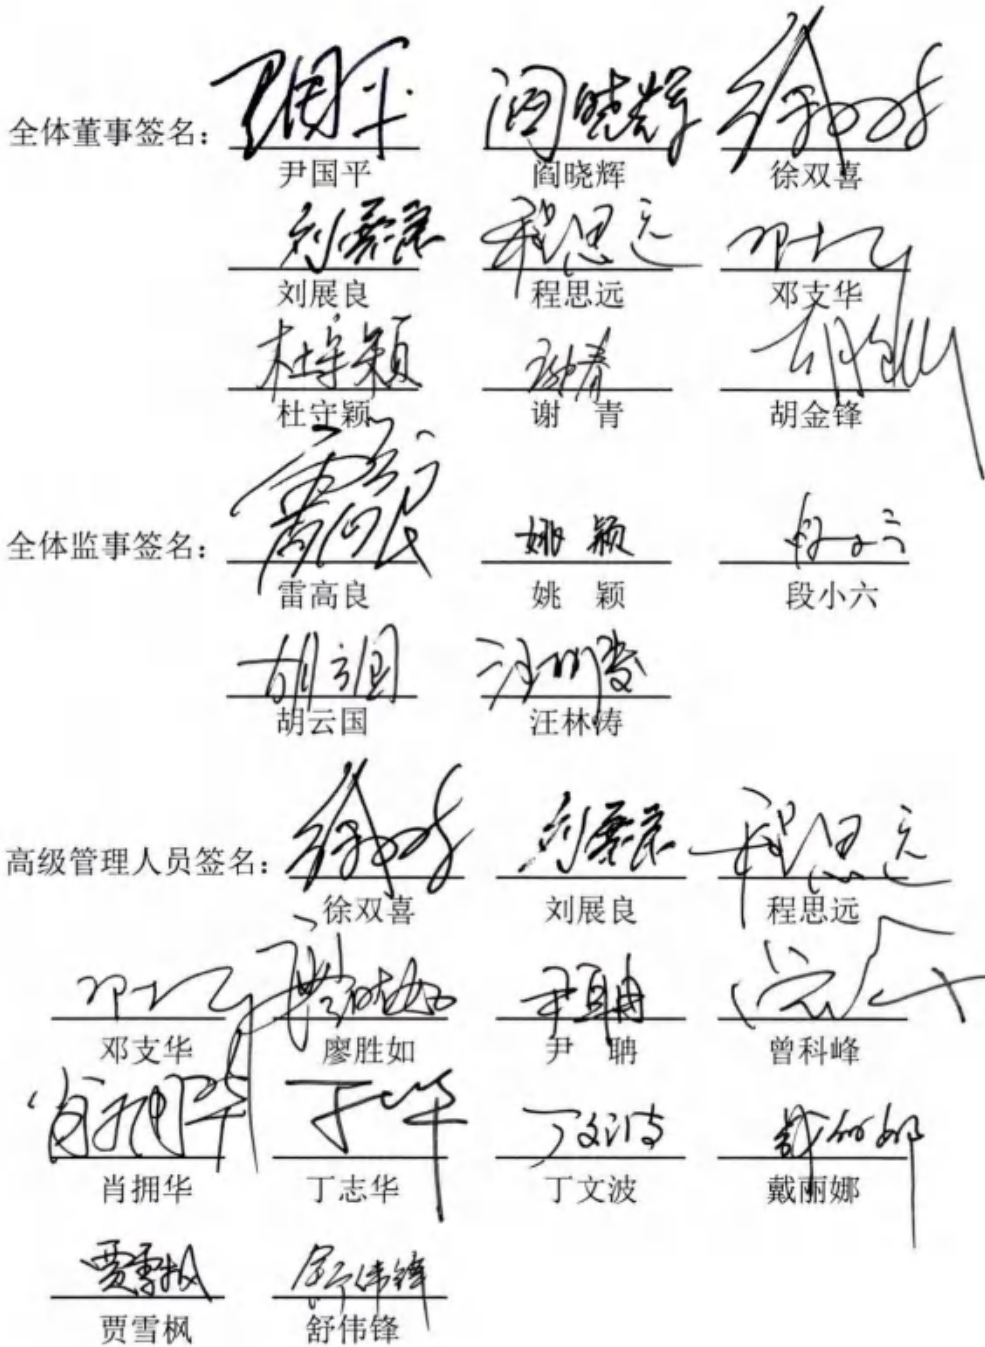 全体董事签名：
尹国平 阎晓辉 徐双喜
刘展良 程思远 邓支华
杜守颖 谢 青 胡金锋
全体监事签名：
雷高良 姚 颖 段小六
胡云国 汪林涛
高级管理人员签名：
徐双喜 刘展良 程思远
邓支华 廖胜如 尹 聃 曾科峰
肖拥华 丁志华 丁文波 戴丽娜
贾雪枫 舒伟锋